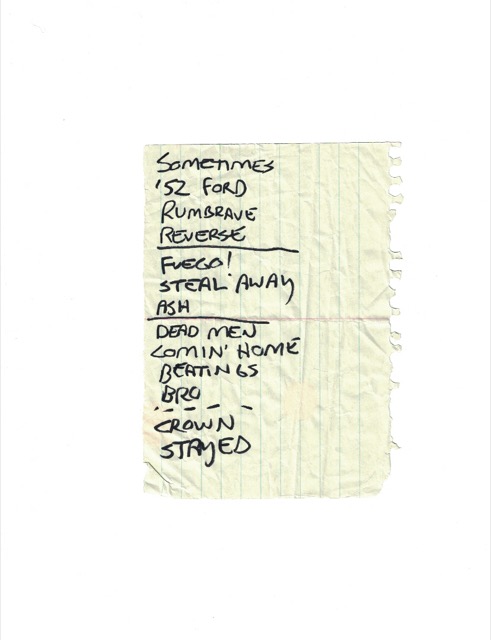 SOMETIMES
'52 FORD
RUMBRAVE
REVERSE
FUEGO!
STEAL AWAY
ASH
DEAD MEN
COMIN' HOME
BEATINGS
BRO
CROWN
STAYED